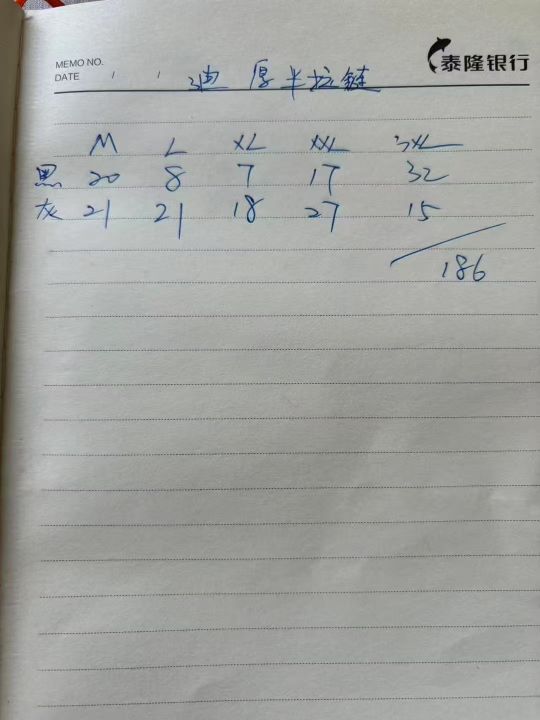 MEMO NO.
DATE / /
泰隆银行
迪 厚半拉链
M L XL XXL 3XL
黑 20 8 7 17 32
灰 21 21 18 27 15
186